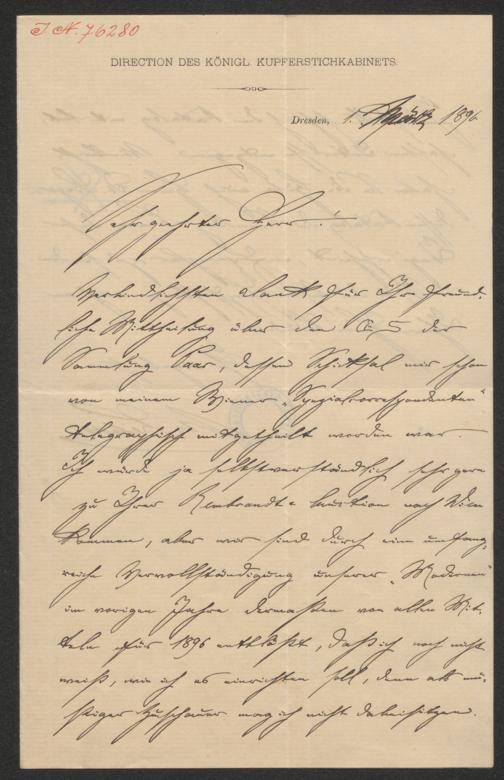 I N. 76280
DIRECTION DES KÖNIGL. KUPFERSTICHKABINETS.
Dresden, 1. März 1896
Sehr geehrter Herr!
Verbindlichsten Dank für Ihre freund-
liche Mittheilung über den ES der
Sammlung Paar, dessen Schicksal mir schon
von meinem Wiener „Spezialcorrespondenten"
telegraphisch mitgetheilt worden war.
Ich würde ja selbstverständlich sehr gern
zu Ihrer Rembrandt-Auction nach Wien
kommen, aber wir sind durch eine umfang-
reiche Vervollständigung unserer „Modernen"
im vorigen Jahre dermaßen von allen Mit-
teln für 1896 entblößt, daß ich noch nicht
weiß, wie ich es einrichten soll, denn als mü-
ßiger Zuschauer mag ich nicht dabeisitzen.